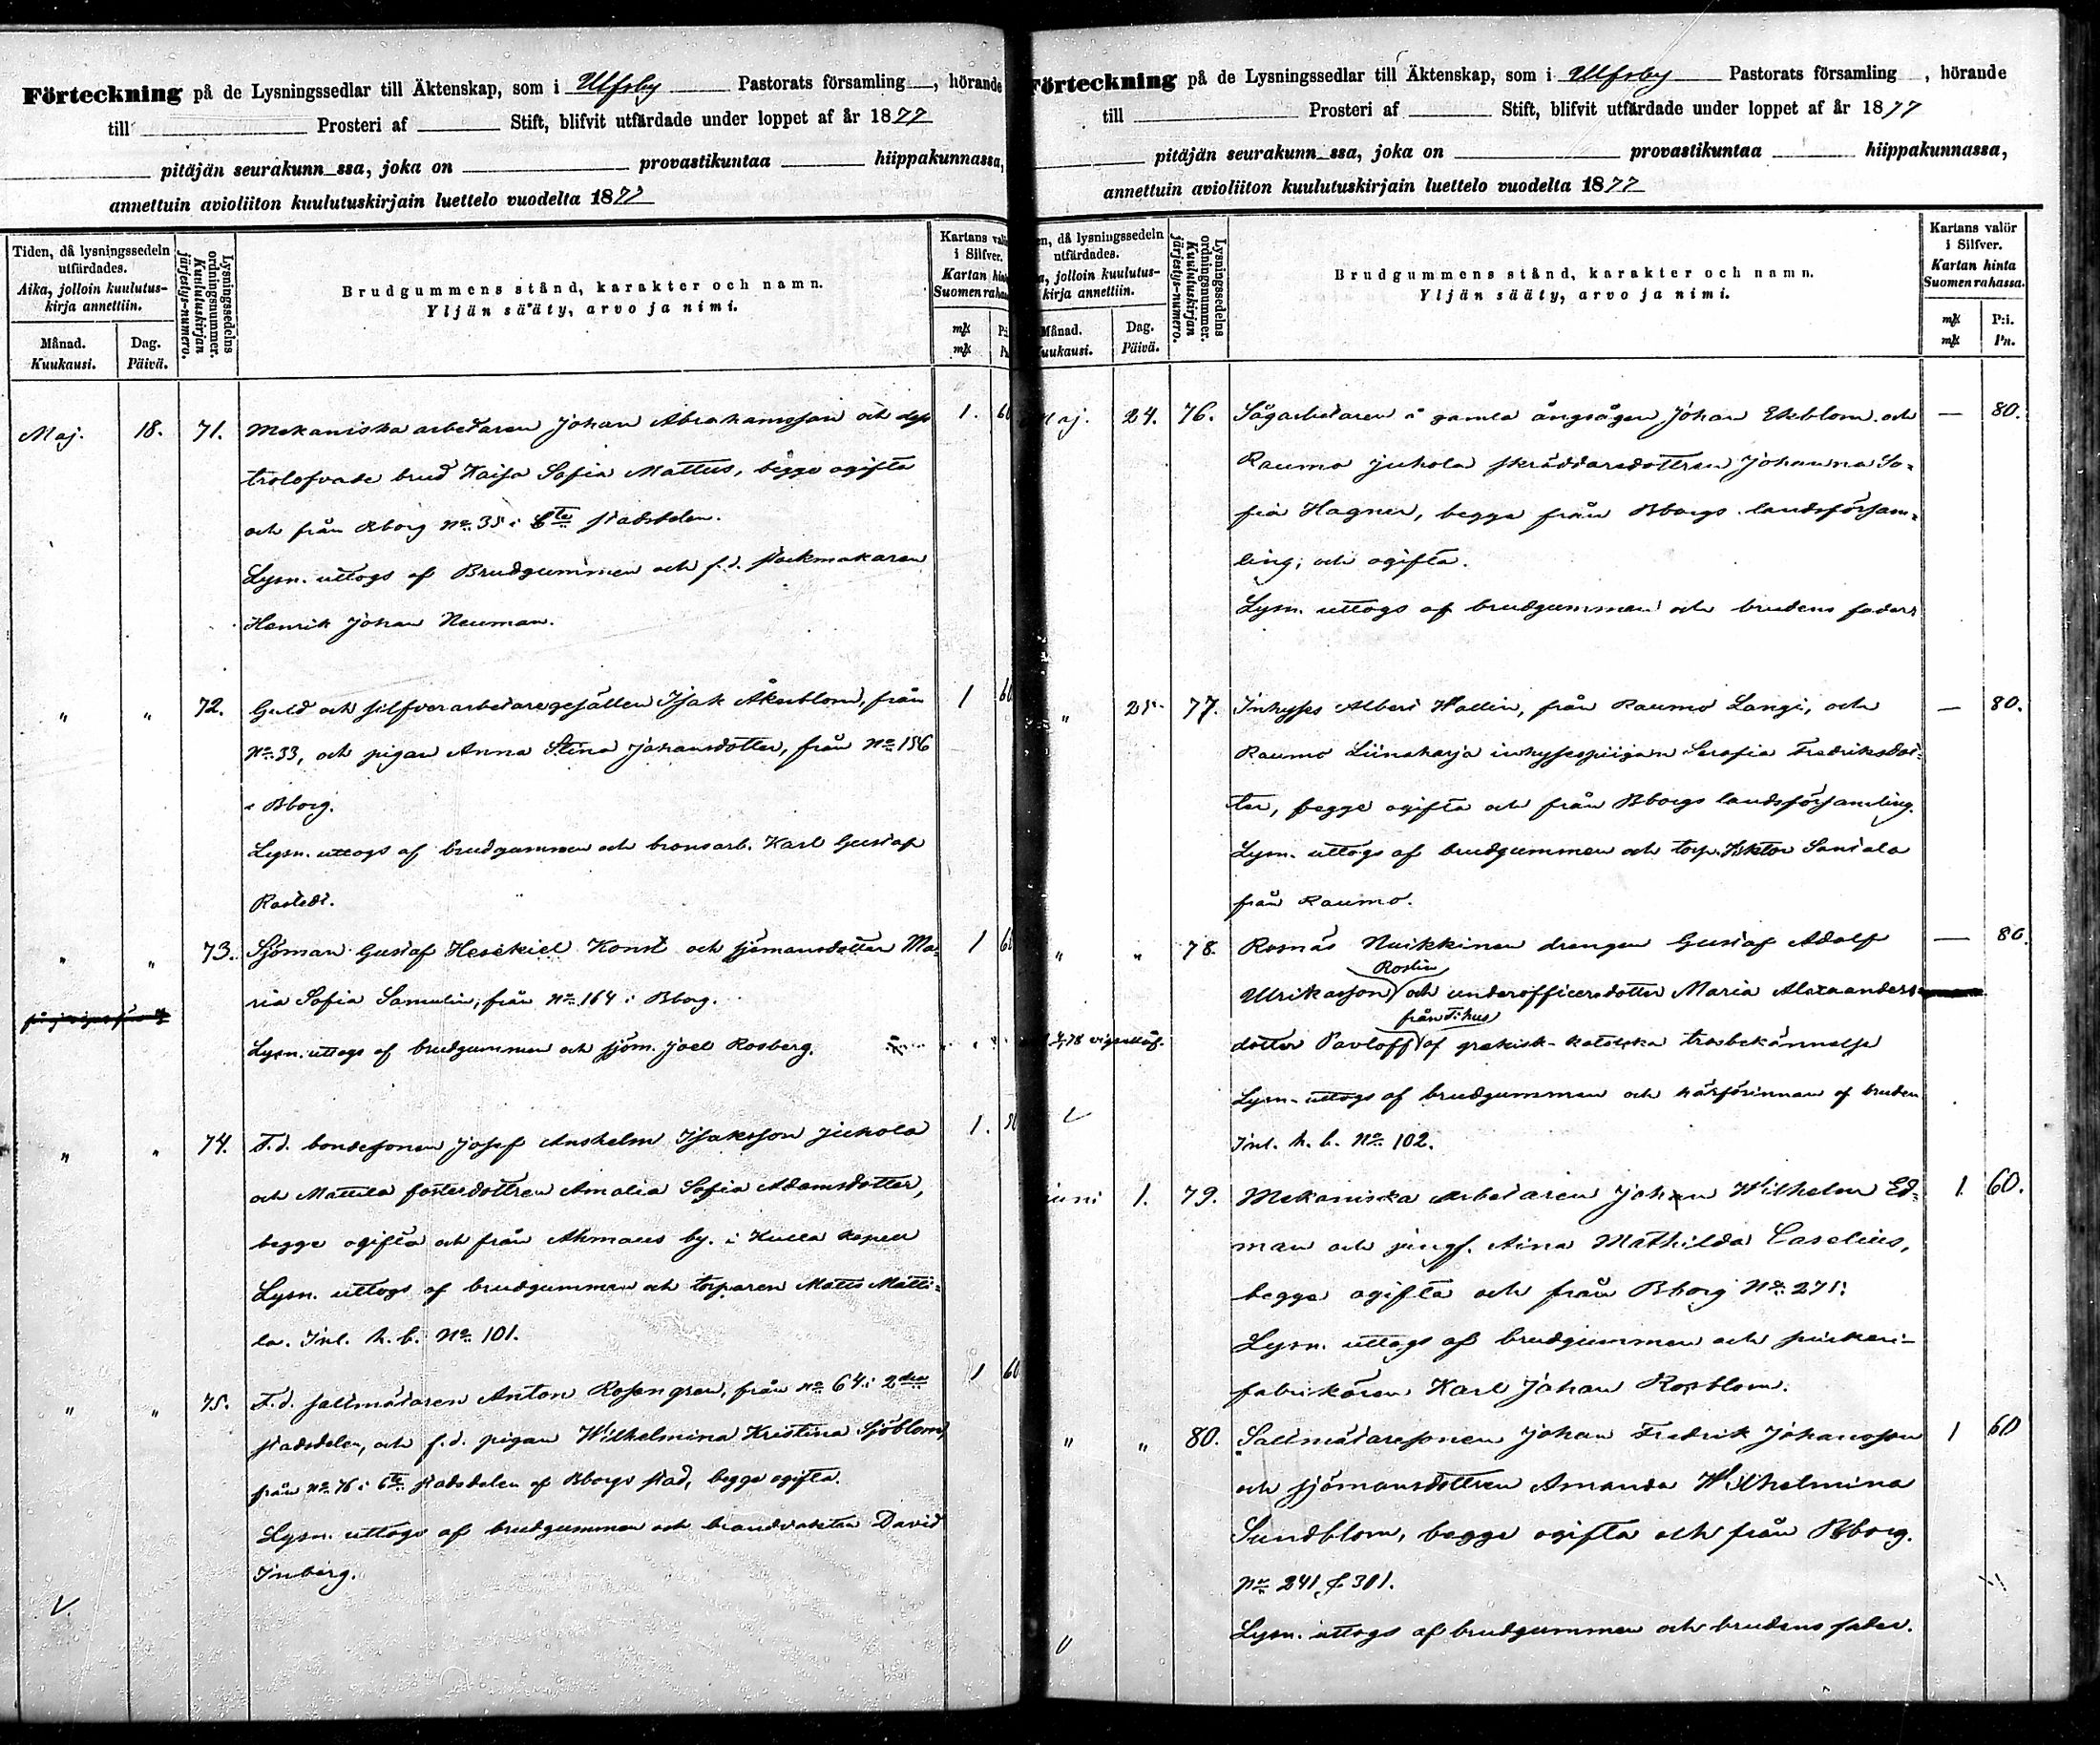 Förteckning på de Lysningssedlar till Äktenskap, som i Ulfsby Pastorats församling, hörande
till Prosteri af Stift, blifvit utfärdade under loppet af år 1877
pitäjän seurakunn ssa, joka on provastikuntaa hiippakunnassa,
annettuin avioliiton kuulutuskirjain luettelo vuodelta 1877
Tiden, då lysningssedeln utfärdades.
Aika, jolloin kuulutuskirja annettiin.
Månad. Kuukausi.
Dag. Päivä.
Lysningssedelns ordningsnummer.
Kuulutuskirjan järjestys-numero.
Brudgummens stånd, karakter och namn.
Yljän sääty, arvo ja nimi.
Kartans valör i Silfver.
Kartan hinta Suomen rahassa.
Maj. 18. 71. Mekaniska arbetaren Johan Abrahamsson och dess 1. 60
trolofvade brud Kaisa Sofia Mattus, begge ogifta
och från Bborg No 35 i stadsdelen.
Lysn. uttogs af Brudgummen och f.d. stockmakaren
Henrik Johan Neuman.
" " 72. Guld och silfverarbetaregesällen Isak Åkerblom, från 1 60
No 33, och pigan Anna Stina Johansdotter, från No 156
i Bborg.
Lysn. uttogs af brudgummen och bronsarb. Karl Gustaf
Rostedt.
" " 73. Sjöman Gustaf Hesekiel Konst och sjömansdotter Ma- 1 60
ria Sofia Samulin, från No 164 i Bborg.
Lysn. uttogs af brudgummen och sjöm. Joel Rosberg.
" " 74. F.d. bondesonen Josef Anshelm Isaksson Juhola 1.
och Mattila fosterdottren Amalia Sofia Adamsdotter,
begge ogifta och från Ahmaus by i Kulla kapell
Lysn. uttogs af brudgummen och torparen Matts Matti-
la. Inl. h. b. No 101.
" " 75. F.d. saltmätaren Anton Rosengren, från No 64 i 2dra 1 60
stadsdelen, och f.d. pigan Wilhelmina Kristina Sjöblom,
från No 76 i 6te stadsdelen af Bborgs stad, begge ogifta.
Lysn. uttogs af brudgummen och brandvakten David
Inberg.
V.
Förteckning på de Lysningssedlar till Äktenskap, som i Ulfsby Pastorats församling, hörande
till Prosteri af Stift, blifvit utfärdade under loppet af år 1877
pitäjän seurakunn ssa, joka on provastikuntaa hiippakunnassa,
annettuin avioliiton kuulutuskirjain luettelo vuodelta 1877
en, då lysningssedeln utfärdades.
a, jolloin kuulutuskirja annettiin.
Månad. uukausi.
Dag. Päivä.
Lysningssedelns ordningsnummer.
Kuulutuskirjan järjestys-numero.
Brudgummens stånd, karakter och namn.
Yljän sääty, arvo ja nimi.
Kartans valör i Silfver.
Kartan hinta Suomen rahassa.
P:i. Pn.
Maj. 24. 76. Sågarbetaren å gamla ångsågen Johan Ekblom och — 80.
Raumo Juhola skräddaredottren Johanna So-
fia Hagner, begge från Bborgs landsförsam-
ling, och ogifta.
Lysn. uttogs af brudgumman och brudens fader
" 25. 77. Inhyses Albert Hallin, från Raumo Langi, och — 80.
Raumo Liinaharja inhysespigan Serafia Fredriksdot-
ter, begge ogifta och från Bborgs landsförsamling.
Lysn. uttogs af brudgummen och torp. Viktor Santala
från Raumo.
" " 78. Rosnäs Nuikkinen drengen Gustaf Adolf — 80.
Roslin
Ulriksson och underofficersdotter Maria Alexanders
från Tihus
dotter Pavloff af grekisk-katolska trosbekännelse
Lysn. uttogs af brudgummen och härförinnan af bruden
V
Inl. h. b. No 102.
Juni 1. 79. Mekaniska arbetaren Johan Wilhelm Ed- 1. 60.
man och jungf. Aina Mathilda Caselius,
begge ogifta och från Bborg No 271.
Lysn. uttogs af brudgummen och
fabrikören Karl Johan Rosblom.
" " 80. Saltmätaresonen Johan Fredrik Johansson 1 60
och sjömansdottren Amanda Wilhelmina
Sundblom, begge ogifta och från Bborg.
No 241 & 301.
Lysn. uttogs af brudgummen och brudens fader.